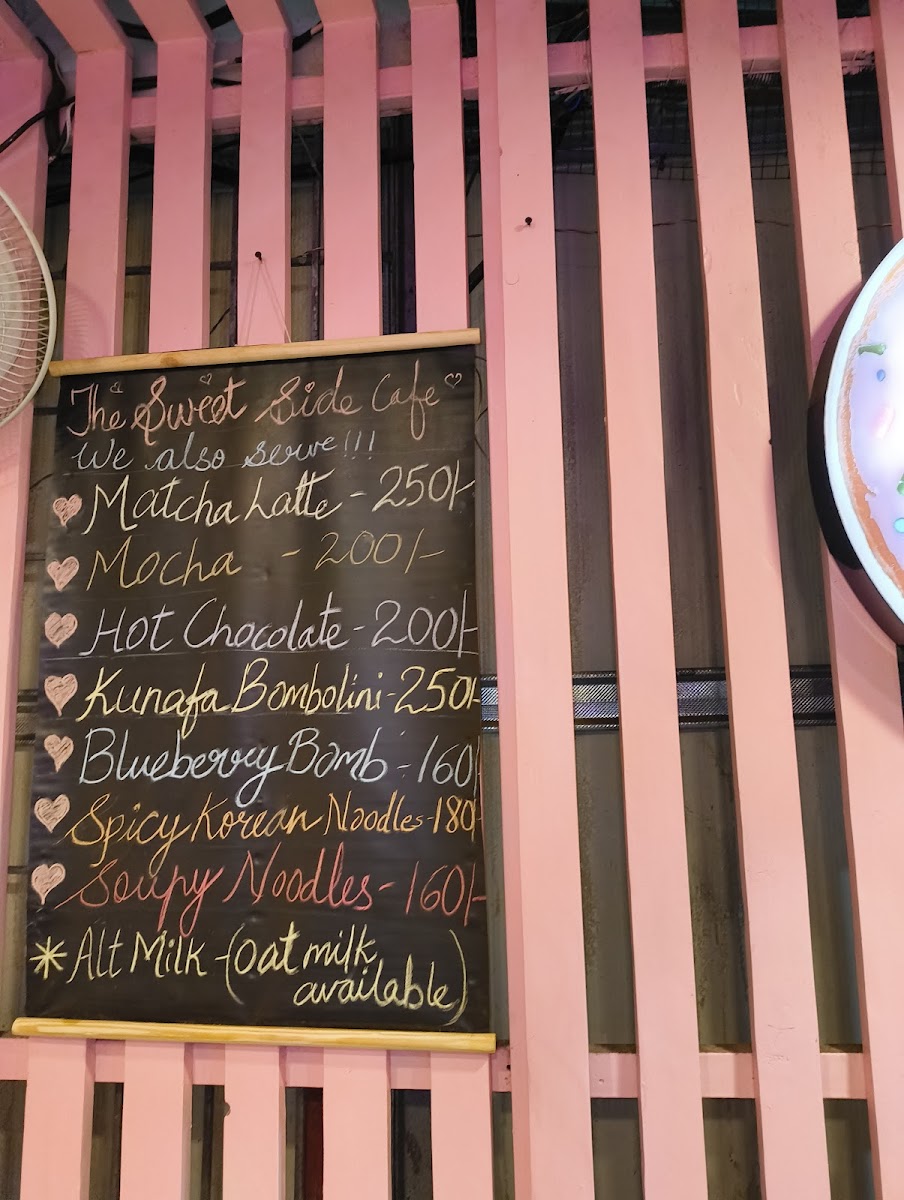 The Sweet Side Cafe
We also serve!!!
Matcha Latte - 250/-
Mocha - 200/-
Hot Chocolate - 200/-
Kunafa Bombolini - 250/-
Blueberry Bomb - 160/
Spicy Korean Noodles - 180/
Soupy Noodles - 160/-
* Alt Milk - (Oat milk
available)